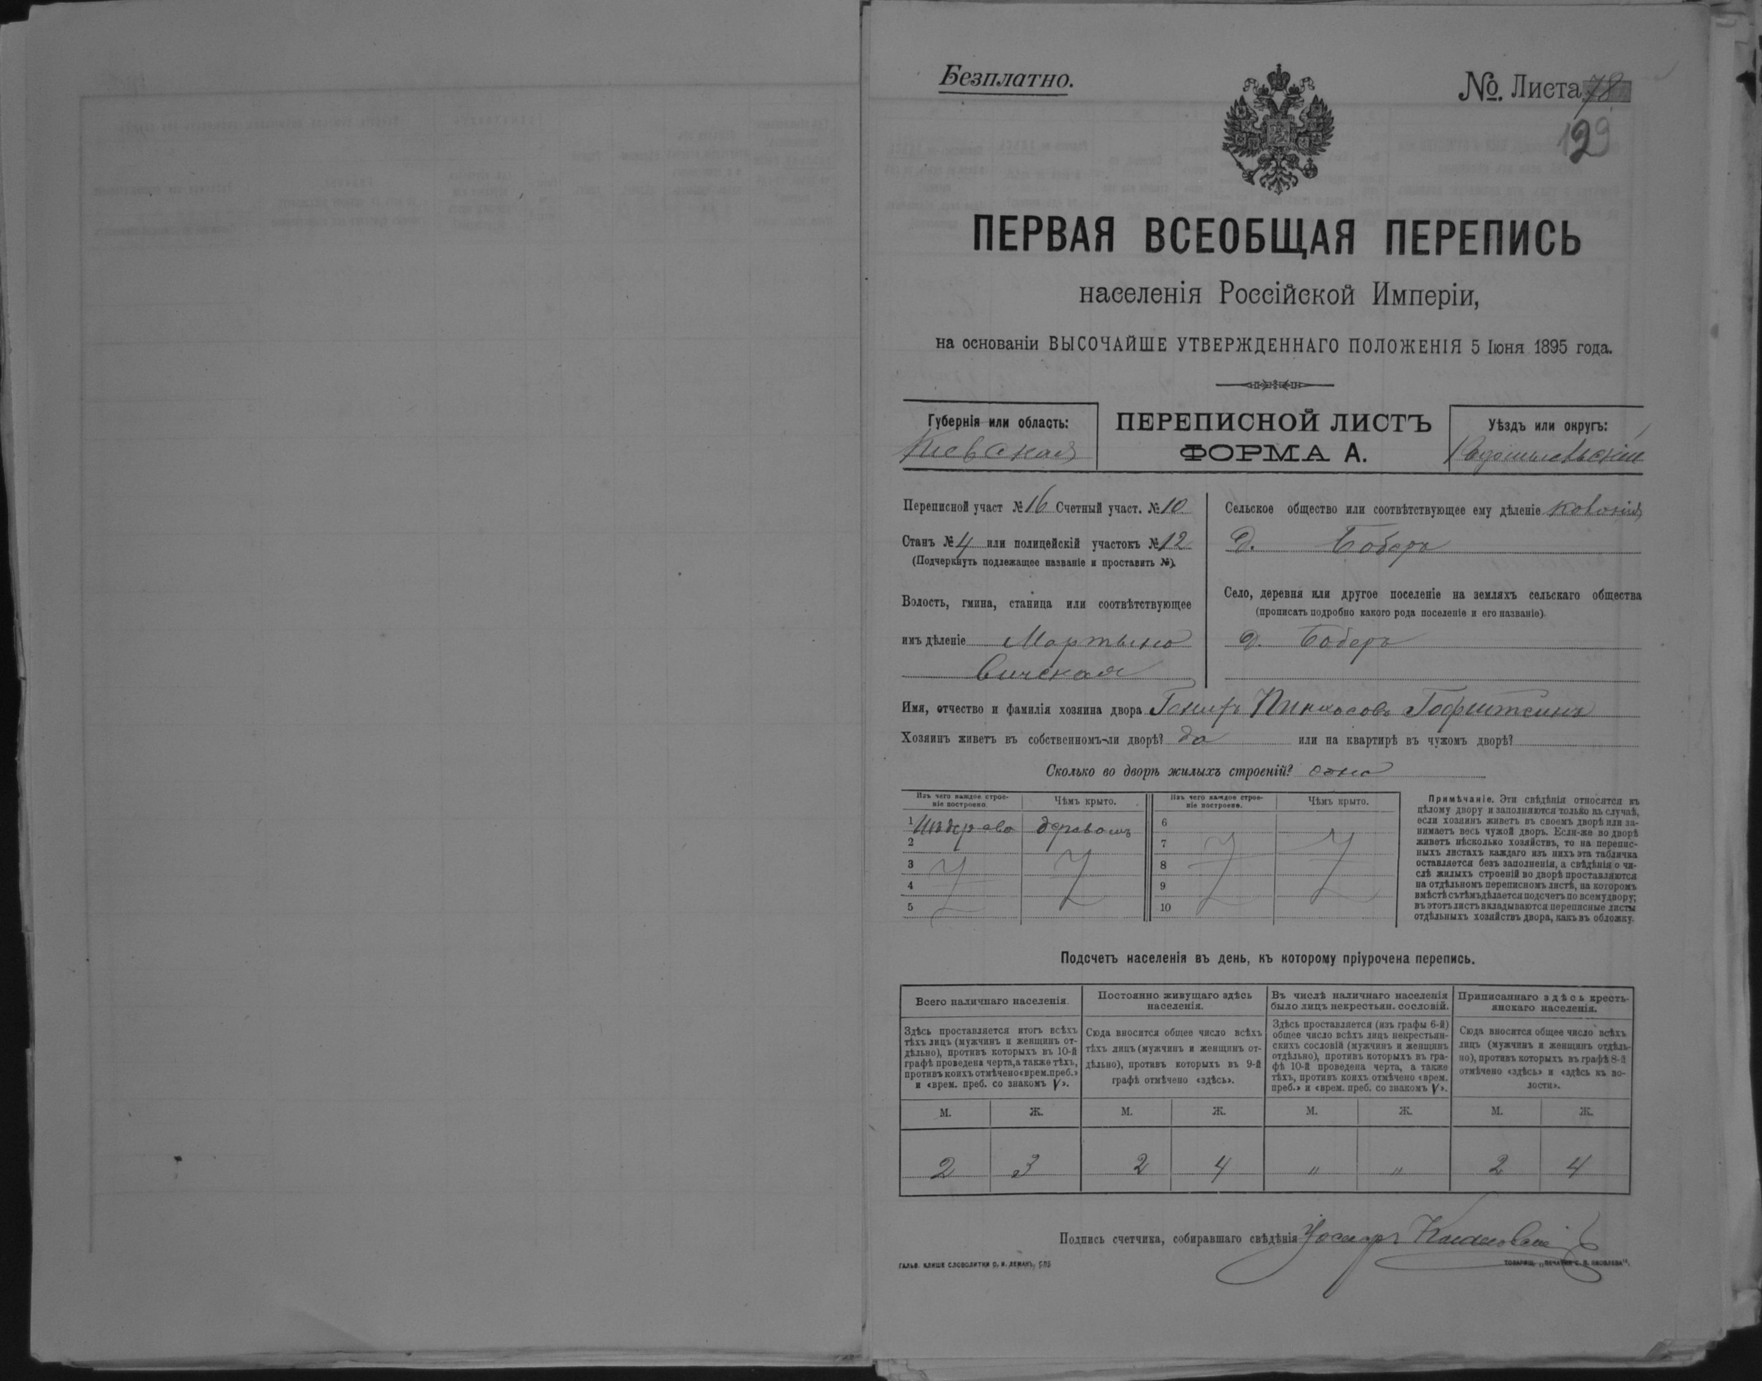 Безплатно.
№. Листа 78
129
ПЕРВАЯ ВСЕОБЩАЯ ПЕРЕПИСЬ
населенія Россійской Имперіи,
на основаніи ВЫСОЧАЙШЕ УТВЕРЖДЕННАГО ПОЛОЖЕНІЯ 5 Іюня 1895 года.
Губернія или область:
Кіевская
ПЕРЕПИСНОЙ ЛИСТЪ
ФОРМА А.
Уѣздъ или округъ:
Радомысльскій
Переписной участ № 16 Счетный участ. № 10
Станъ № 4 или полицейскій участокъ № 12
(Подчеркнуть подлежащее названіе и проставить №).
Волость, гмина, станица или соотвѣтствующее
имъ дѣленіе Мартыно
вичская
Сельское общество или соотвѣтствующее ему дѣленіе колонія
д. Боберъ
Село, деревня или другое поселеніе на земляхъ сельскаго общества
(прописать подробно какого рода поселеніе и его названіе).
д. Боберъ
Имя, отчество и фамилія хозяина двора Пинхасовъ Гофштеинъ
Хозяинъ живетъ въ собственномъ-ли дворѣ? да или на квартирѣ въ чужомъ дворѣ?
Сколько во дворѣ жилыхъ строеній? одно
Изъ чего каждое строе-
ніе построено.
Чѣмъ крыто.
Изъ чего каждое строе-
ніе построено.
Чѣмъ крыто.
1 Изъ дерева деревомъ
2
3
4
5
6
7
8
9
10
Примѣчаніе. Эти свѣдѣнія относятся къ
цѣлому двору и заполняются только въ случаѣ,
если хозяинъ живетъ въ своемъ дворѣ или за-
нимаетъ весь чужой дворъ. Если-же во дворѣ
живетъ нѣсколько хозяйствъ, то на перепис-
ныхъ листахъ каждаго изъ нихъ эта табличка
оставляется безъ заполненія, а свѣдѣнія о чи-
слѣ жилыхъ строеній во дворѣ проставляются
на отдѣльномъ переписномъ листѣ, на которомъ
вмѣстѣ съ тѣмъ дѣлается подсчетъ по всему двору;
въ этотъ листъ вкладываются переписные листы
отдѣльныхъ хозяйствъ двора, какъ въ обложку.
Подсчетъ населенія въ день, къ которому пріурочена перепись.
Всего наличнаго населенія.
Здѣсь проставляется итогъ всѣхъ
тѣхъ лицъ (мужчинъ и женщинъ от-
дѣльно), противъ которыхъ въ 10-й
графѣ проведена черта, а также тѣхъ,
противъ коихъ отмѣчено «врем. преб.»
и «врем. преб. со знакомъ V».
Постоянно живущаго здѣсь
населенія.
Сюда вносится общее число всѣхъ
тѣхъ лицъ (мужчинъ и женщинъ от-
дѣльно), противъ которыхъ въ 9-й
графѣ отмѣчено «здѣсь».
Въ числѣ наличнаго населенія
было лицъ некрестьян. сословій.
Здѣсь проставляется (изъ графы 6-й)
общее число всѣхъ лицъ некрестьян-
скихъ сословій (мужчинъ и женщинъ
отдѣльно), противъ которыхъ въ гра-
фѣ 10-й проведена черта, а также
тѣхъ, противъ коихъ отмѣчено «врем.
преб.» и «врем. преб. со знакомъ V».
Приписаннаго здѣсь кресть-
янскаго населенія.
Сюда вносится общее число всѣхъ
лицъ (мужчинъ и женщинъ отдѣль-
но), противъ которыхъ въ графѣ 8-й
отмѣчено «здѣсь» и «здѣсь къ во-
лости».
М. Ж. М. Ж. М. Ж. М. Ж.
2 3 2 4 " " 2 4
Подпись счетчика, собиравшаго свѣдѣнія
ГАЛЬВ. КЛИШЕ СЛОВОЛИТНИ О. И. ЛЕМАНЪ, СПБ
ТОВАРИЩ. „ПЕЧАТНЯ С. П. ЯКОВЛЕВА“.